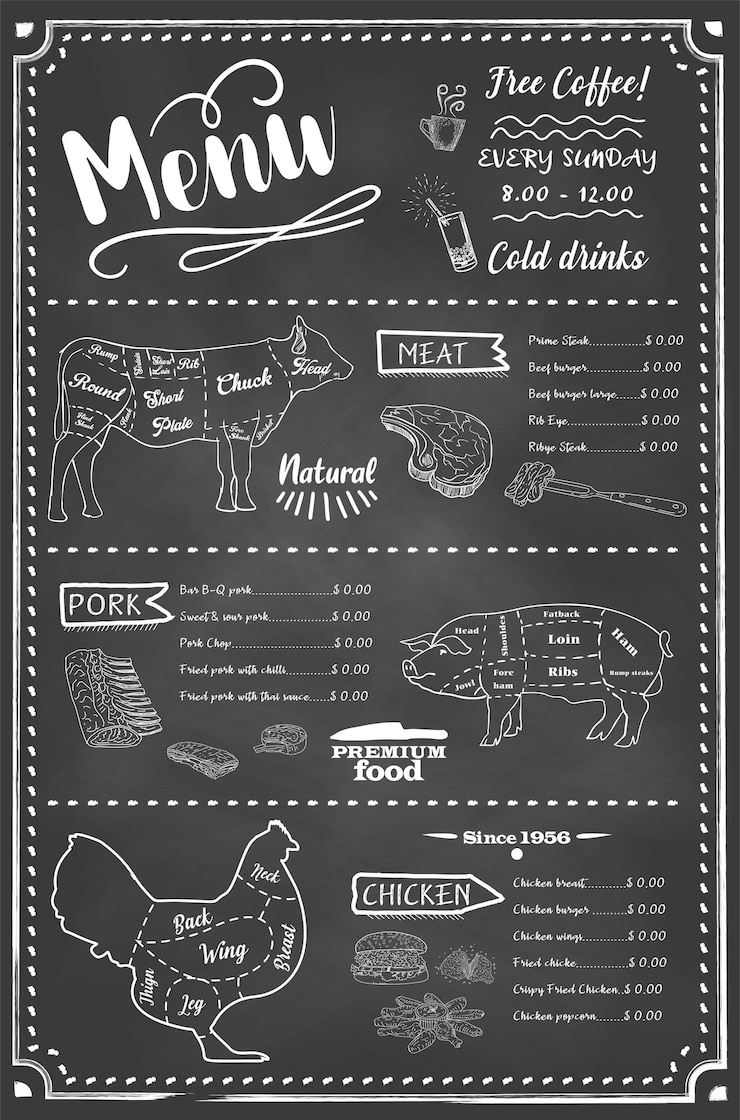 Menu
Free Coffee!
EVERY SUNDAY
8.00 - 12.00
Cold drinks
Rump
Short
Loin
Rib
Chuck
Head
Round
Short
Plate
Hind
Shank
Fore
Shank
Natural
MEAT
Prime Steak..............$ 0.00
Beef burger..............$ 0.00
Beef burger large.......$ 0.00
Rib Eye....................$ 0.00
Ribye Steak..............$ 0.00
PORK
Bar B-Q pork.....................$ 0.00
Sweet & sour pork................$ 0.00
Pork Chop..........................$ 0.00
Fried pork with chilli...........$ 0.00
Fried pork with thai sauce.....$ 0.00
Head
Shoulders
Fatback
Loin
Ham
Jowl
Fore
ham
Ribs
Rump steaks
PREMIUM
food
Since 1956
Neck
Back
Wing
Breast
Thign
Leg
CHICKEN
Chicken breast..........$ 0.00
Chicken burger .........$ 0.00
Chicken wings...........$ 0.00
Fried chicke..............$ 0.00
Crispy Fried Chicken..$ 0.00
Chicken popcorn.......$ 0.00